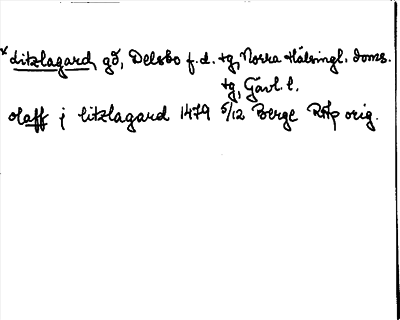 *Litzlagard, gd, Delsbo f.d. tg, Norra Hälsingl. doms.
tg, Gävl. l.
olaff j litzlagard 1479 5/12 Berge RAp orig.